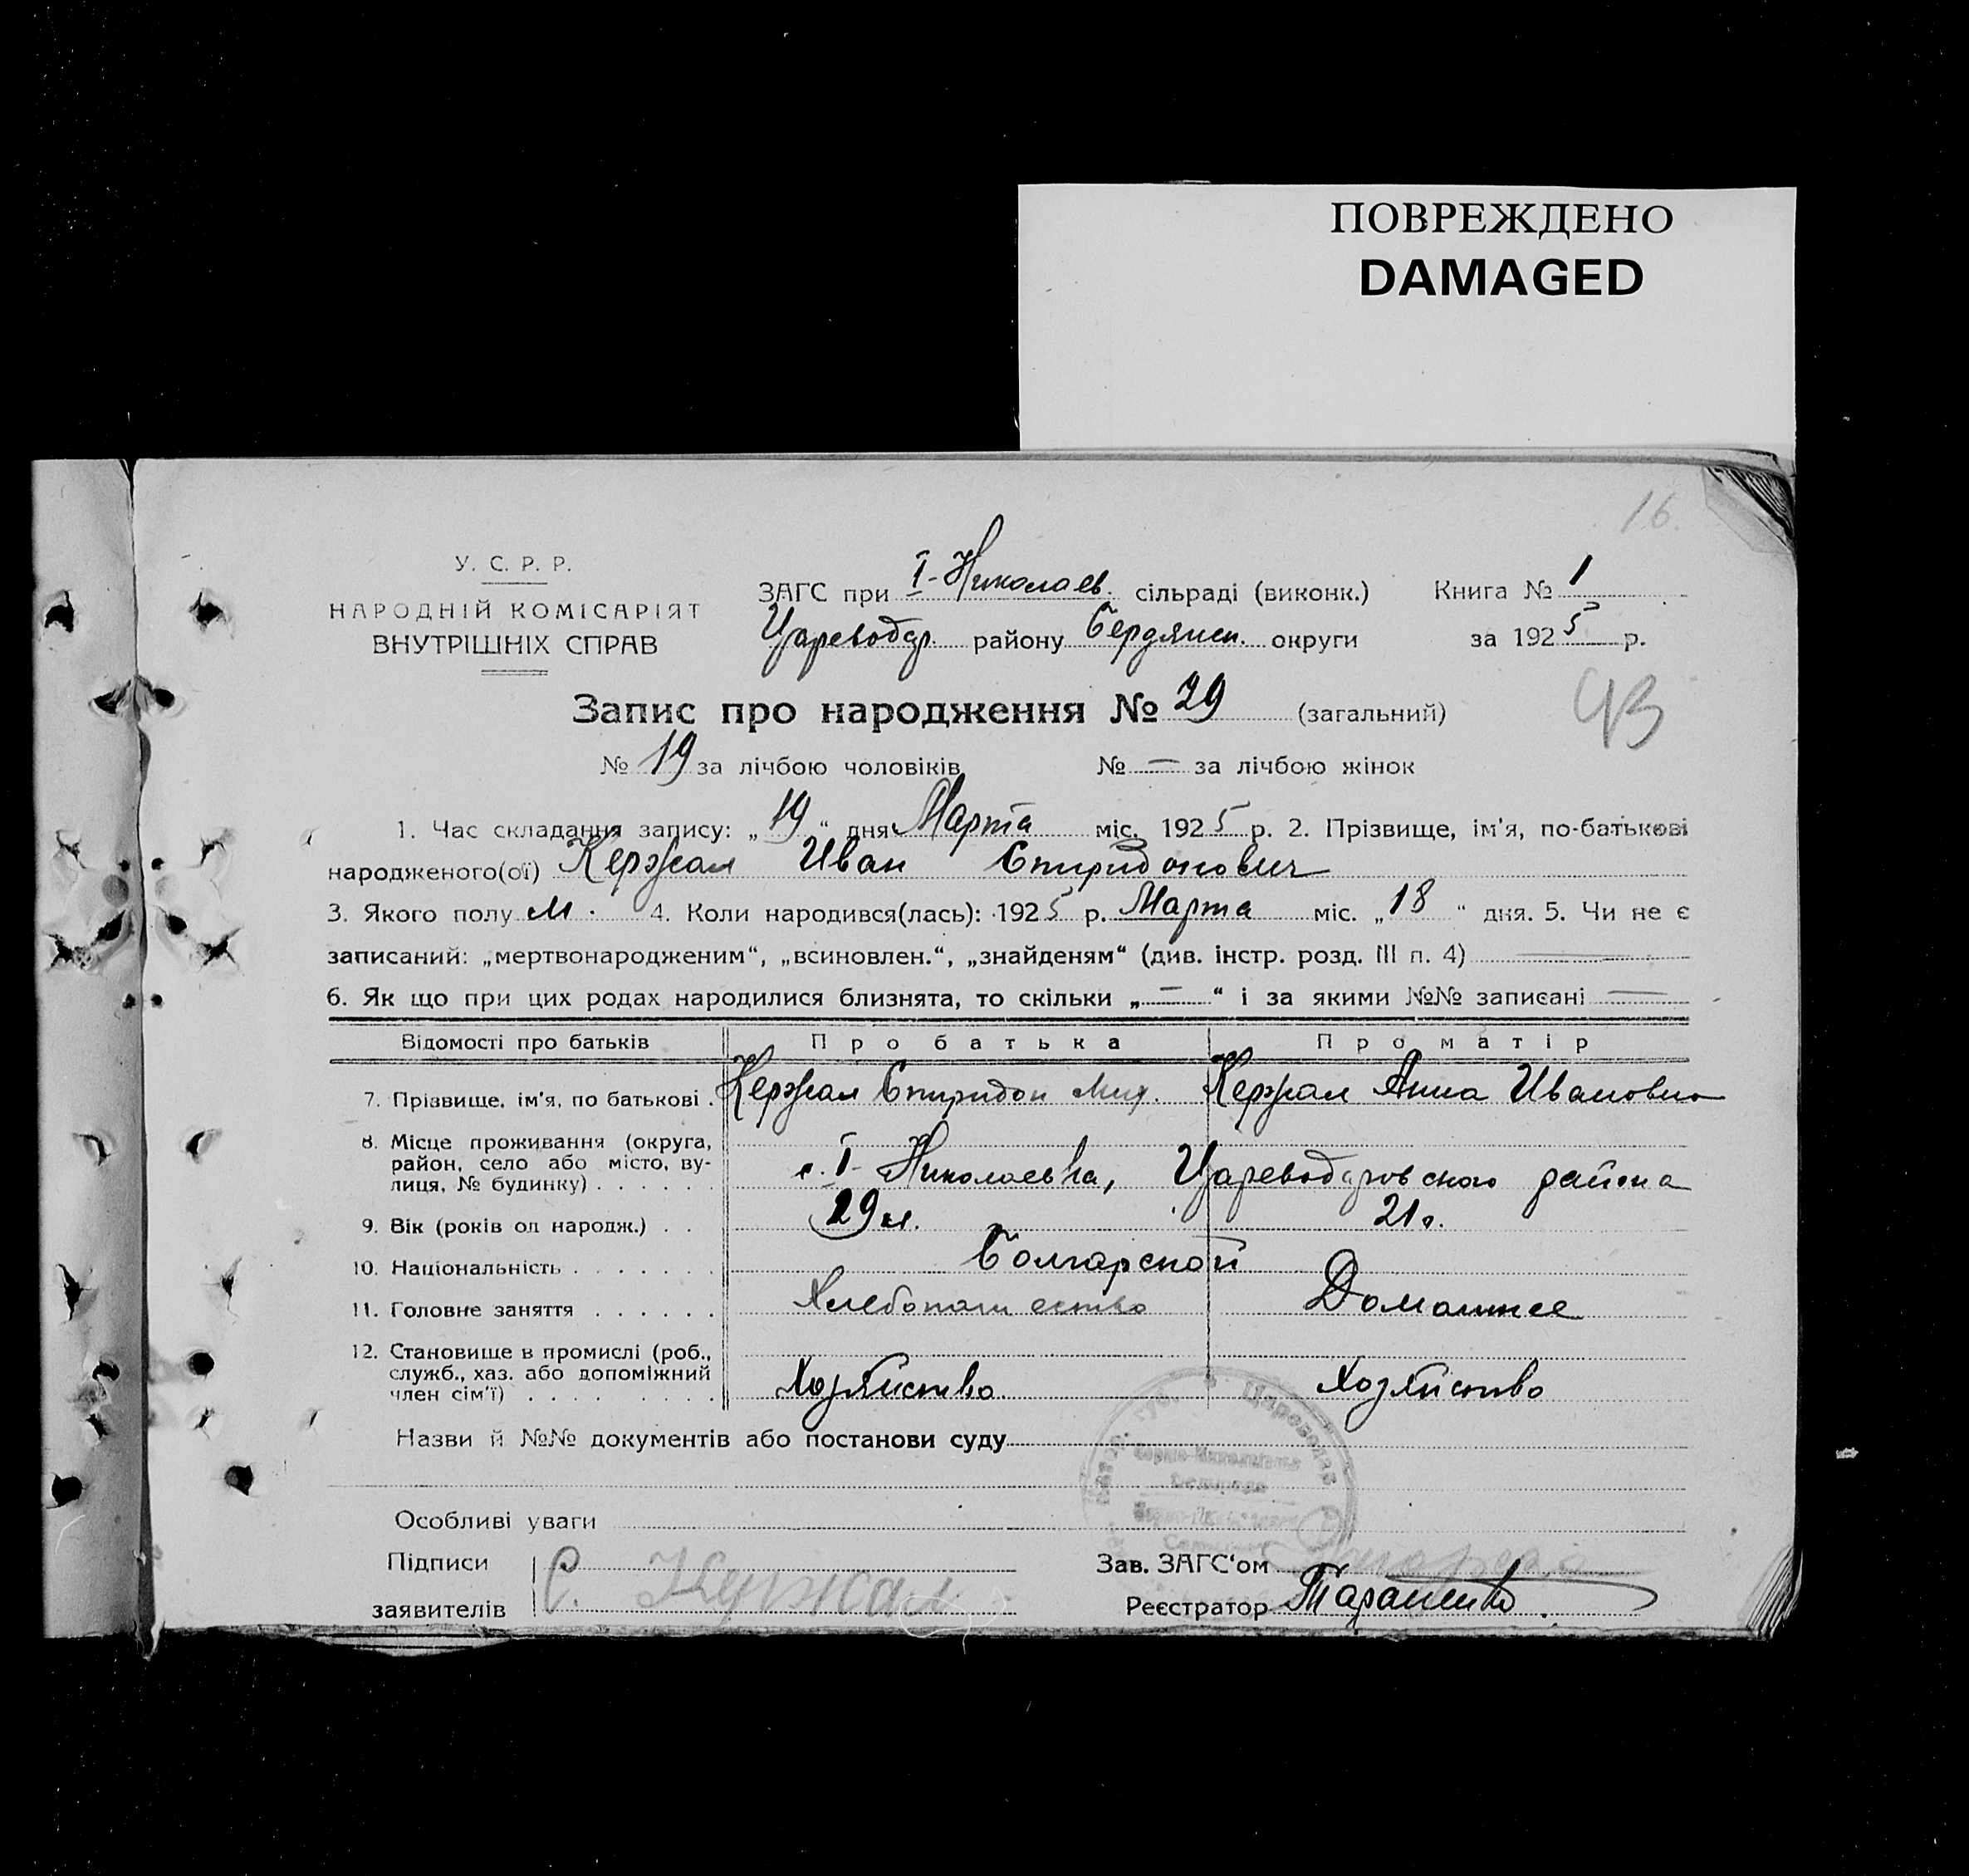 ПОВРЕЖДЕНО
DAMAGED
16.
У. С. Р. Р.
НАРОДНІЙ КОМІСАРІЯТ
ВНУТРІШНІХ СПРАВ
ЗАГС при I-Николаев. сільраді (виконк.) Книга № 1
Цареводар. району Бердянск. округи за 1925 р.
Запис про народження № 29 (загальний)
43
№ 19 за лічбою чоловіків № — за лічбою жінок
1. Час складання запису: „19“ дня Марта міс. 1925 р. 2. Прізвище, ім'я, по-батькові
народженого(ої) Кержал Иван Спиридонович
3. Якого полу м. 4. Коли народився(лась): 1925 р. Марта міс. „18“ дня. 5. Чи не є
записаний: „мертвонародженим“, „всиновлен.“, „знайденям“ (див. інстр. розд. III п. 4) —
6. Як що при цих родах народилися близнята, то скільки „—“ і за якими №№ записані —
Відомості про батьків Про батька Про матір
7. Прізвище, ім'я, по батькові . Кержал Спиридон Мих. Кержал Анна Ивановна
8. Місце проживання (округа,
район, село або місто, ву-
лиця, № будинку) . . . . . . с. I- Николаевка, Цареводаровского района
9. Вік (років од народж.) . . 29 л. 21 г.
10. Національність . . . . . . . Болгарской
11. Головне заняття . . . . . . Хлебопашество Домашнее
12. Становище в промислі (роб.,
служб., хаз. або допоміжний
член сім'ї) . . . . . . . . . Хозяйство Хозяйство
Назви й №№ документів або постанови суду
Особливі уваги
Підписи
заявителів С. Кержал
Зав. ЗАГС'ом
Реєстратор Тараненко